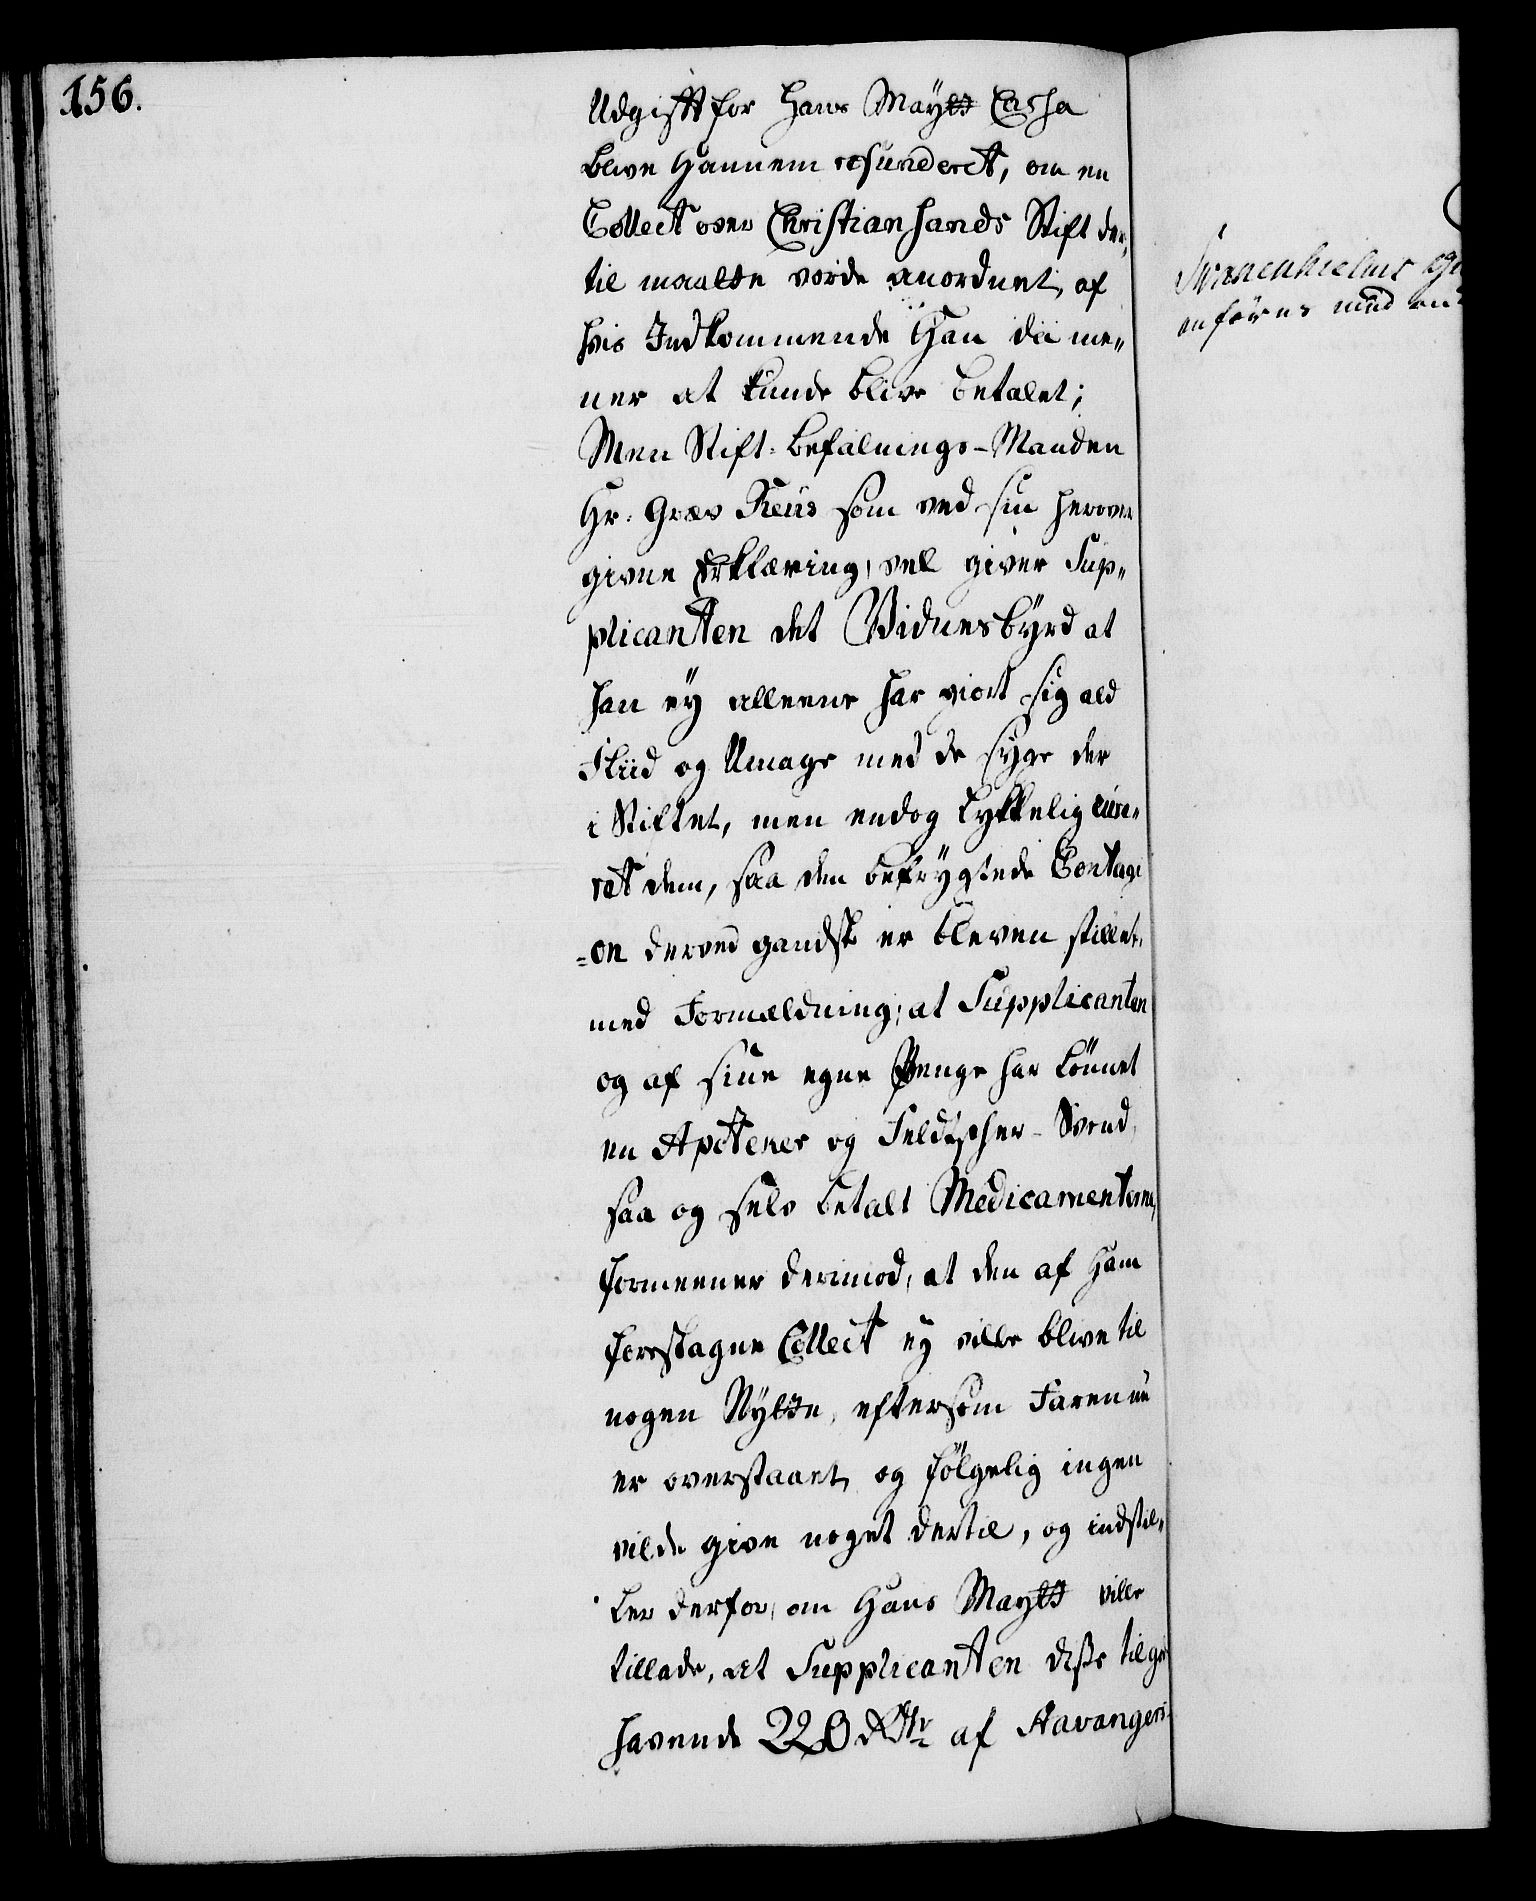 156.
Udgift for Hans Maytt Cassa
blive Hannem refunderet, om en
Collect over Christiansands Stift der,,
til maatte vorde anordnet, af
hvis Indkommende Han da me,,
ner at kunde blive betalet;
Men Stift-befalnings-Manden
Hr: Grev Reus som ved sin herover
givne Erklæring, vel giver Sup,,
plicanten det Vidnesbÿrd at
han eÿ alleene har giort sig ald
Fliid og Umage med de syge der
i Stiftet, men endog lykkelig cure,,
ret dem, saa den befrygtede Contagi
=on derved gandske er bleven stillet,
med Formældning, at Supplicanten
og af sine egne Penge har lönnet
en Apoteker og Feldtskier-Svend,
saa og selv betalt Medicamenterne,
formeener derimod, at den af Ham
foreslagne Collect eÿ ville blive til
nogen Nytte, eftersom Faren nu
er overstaaet, og fölgelig ingen
vilde give noget dertil, og indstil,,
ler derfor, om Hans Maytt ville
tillade, at Supplicanten disse tilgode
havende 220 Rdr af Stavangers
enföres med